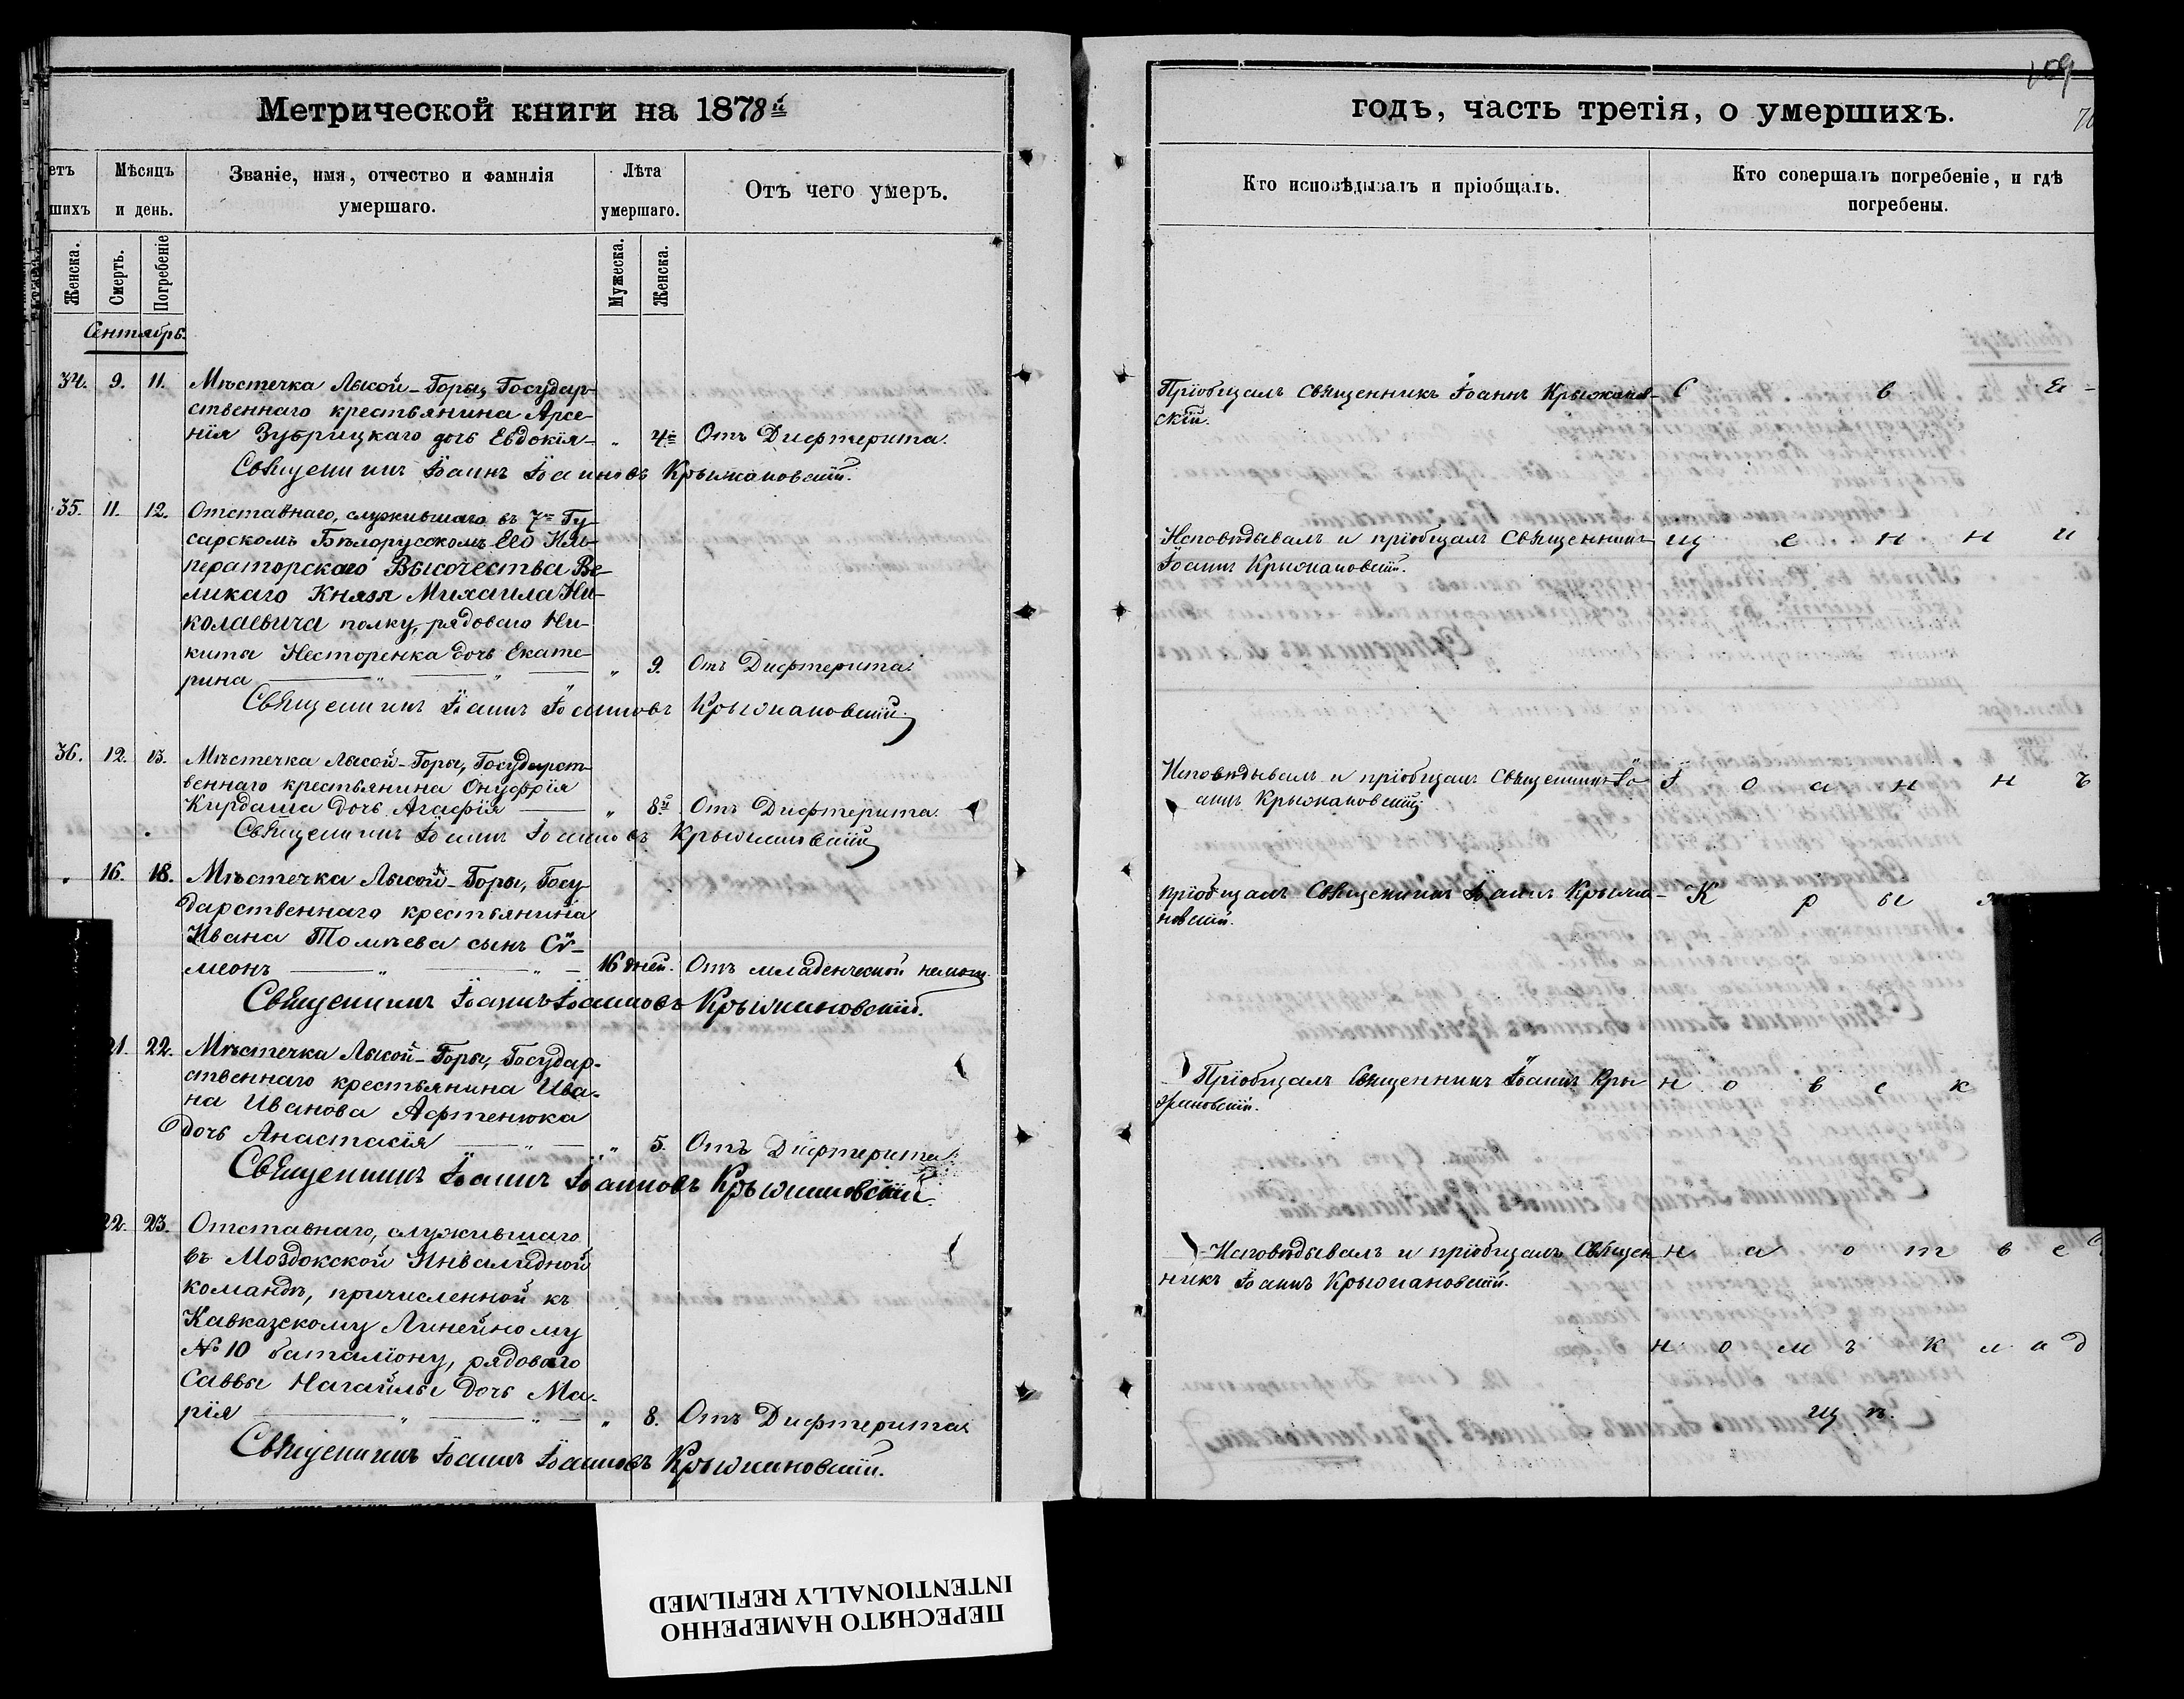 Метрической книги на 1878й
етъ
шихъ
Мѣсяцъ
и день.
Званіе, имя, отчество и фамилія
умершаго.
Лѣта
умершаго.
Отъ чего умеръ.
Женска.
Смерть.
Погребеніе
Мужеска.
Женска.
Сентябрь.
34. 9. 11. Мѣстечка Лысой-Горы, Государ-
ственнаго крестьянина Арсе-
нія Зубрицкаго дочь Евдокія - „ 4е Отъ Дифтерита.
Священникъ Іоаннъ Іоанновъ Крыжановскій.
35. 11. 12. Отставнаго, служившаго въ 7мъ Гу-
сарскомъ Бѣлорусскомъ Его Им-
ператорскаго Высочества Ве-
ликаго Князя Михаила Ни-
колаевича полку, рядоваго Ни-
киты Несторенка дочь Екате-
рина „ „ „ 9. Отъ Дифтерита.
Священникъ Іоаннъ Іоанновъ Крыжановскій
36. 12. 13. Мѣстечка Лысой-Горы, Государст-
веннаго крестьянина Онуфрія
Кирдаша дочь Агафія „ 8й Отъ Дифтерита.
Священникъ Іоаннъ Іоанновъ Крыжановскій
16. 18. Мѣстечка Лысой-Горы, Госу-
дарственнаго крестьянина
Ивана Томчева сынъ Сѵ-
меонъ „ „ 16 дней. Отъ младенческой немощи.
Священникъ Іоаннъ Іоанновъ Крыжановскій.
21. 22. Мѣстечка Лысой-Горы, Государ-
ственнаго крестьянина Ива-
на Иванова Афтенюка
дочь Анастасія „ „ 5. Отъ Дифтерита.
Священникъ Іоаннъ Іоанновъ Крыжановскій.
22. 23. Отставнаго, служившаго
въ Моздокской Инвалидной
командѣ, причисленной къ
Кавказскому Линейному
№ 10 баталіону, рядоваго
Саввы Нагайлы дочь Ма-
рія „ „ „ 8. Отъ Дифтерита.
Священникъ Іоаннъ Іоанновъ Крыжановскій.
109
годъ, часть третія, о умершихъ.
Кто исповѣдывалъ и пріобщалъ.
Кто совершалъ погребеніе, и гдѣ
погребены.
Пріобщалъ Священникъ Іоаннъ Крыжанов- С в я -
скій.
Исповѣдывалъ и пріобщалъ Священникъ щ е н н и
Іоаннъ Крыжановскій.
Исповѣдывалъ и пріобщалъ Священникъ Іо- І о а н н ъ
аннъ Крыжановскій
пріобщалъ Священникъ Іоаннъ Крыжа- К р ы ж
новскій.
Пріобщалъ Священникъ Іоаннъ Кры- н о в с к
жановскій.
Исповѣдывалъ и пріобщалъ Священ- н а о т в е
никъ Іоаннъ Крыжановскій.
н о м ъ к л а д
щ ѣ.
ПЕРЕСНЯТО НАМЕРЕННО
INTENTIONALLY REFILMED